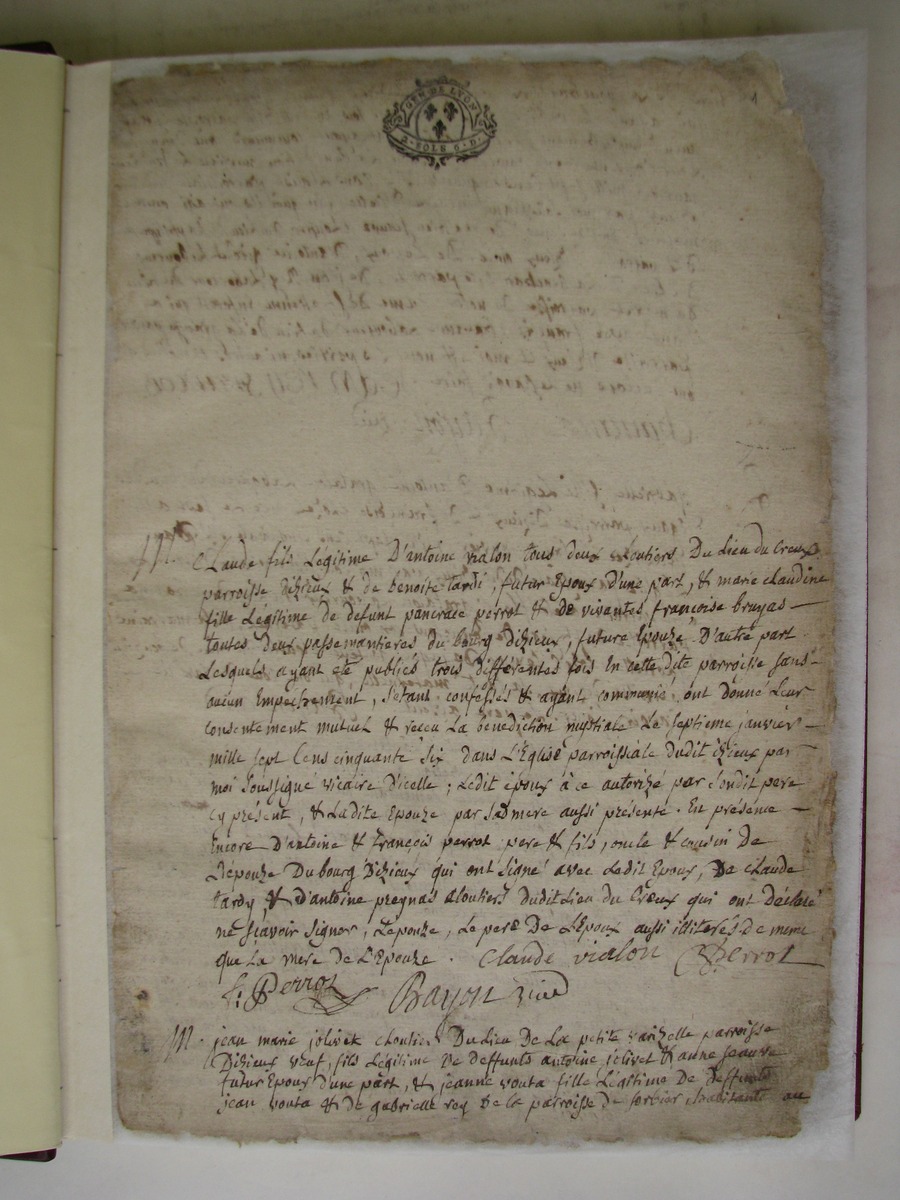 1
GEN DE LYON
2 · SOLS 6 · D ·
M. Claude fils Legitime D'antoine vialon tous deux cloutiers Du Lieu du Creux
parroisse dizieux & de benoite tardi, futur Epoux D'une part, & marie claudine
fille Legitime de defunt pancrace perrot & de vivantes françoise bruyas
toutes deux passemantieres du bourg Dizieux, future Epouze D'autre part
Lesquels ayant eté publiés trois differentes fois En cette dite parroisse sans
aucun Empechement, s'etant confessés & ayant communié ont donné Leur
consentement mutuel & recu La benediction nuptiale Le septieme janvier
mille sept Cens cinquante six dans L'Eglise parroissiale dudit izieux par
moi soussigné vicaire D'icelle ; Ledit époux à ce autorizé par Sondit pere
cy présent, & Ladite Epouze par Sad mere aussi présente. En présence
Encore D'antoine & françois perrot pere & fils, oncle & cousin De
L'épouze Du bourg Dizieux qui ont signé avec Ledit Epoux, De Claude
tardy & d'antoine preynas cloutiers dudit Lieu du Creux qui ont Déclaré
ne sçavoir signer, L'epouze, Le pere De L'Epoux aussi illiterés de meme
que La mere de L'Epouze. Claude vialon A Perrot
f. Perrot Bayon vicd
M. jean marie jolivet cloutier Du Lieu De La petite varizelle parroisse
Dizieux veuf, fils Légitime De deffunts antoine jolivet & anne
futur Epoux d'une part, & jeanne vouta fille Légitime De Deffunts
jean vouta & de gabrielle rey De la parroisse de sorbier habitante au